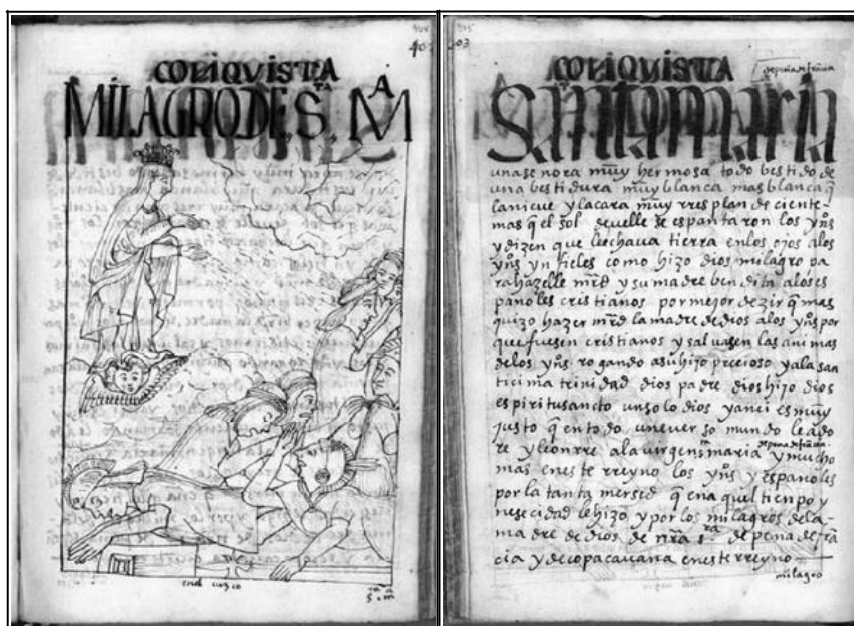 404
402
CONQUISTA
MILAGRO DE S.TA MA
en el cuzco
s.ta m.a
405
403
CONQUISTA
de peña de francia
Santa maria
una se nora muy hermosa todo bestido de
una bestidura muy blanca mas blanca q̃
la nieue y la cara muy rres plan de ciente
mas q̃ el sol de uelle se espantaron los yn̊s
y dizen que le echaua tierra en los ojos a los
yn̊s ynfieles como hizo dios milagro pa
ra hazelle mrd̃ y su madre bendita a los es
pañoles cristianos por mejor dezir q̃ mas
quizo hazer mrd̃ la madre de dios a los yn̊s por
que fuesen cristianos y saluasen las animas
de los yn̊s rogando a su hijo precioso y a la san
ticima trinidad dios padre dios hijo dios
espiritu sancto un solo dios y anci es muy
justo q̃ en todo uneuerso mundo le ado
re y le onrre a la uirgen s.ta maria de peña de francia y mucho
mas en este rreyno los yn̊s y españoles
por la tanta mersed q̃ en aquel tienpo y
nesecidad le hizo y por los milagros de la
madre de dios de nr̃a s.ra de pena de frã
cia y de copacauana en este rreyno
milagro